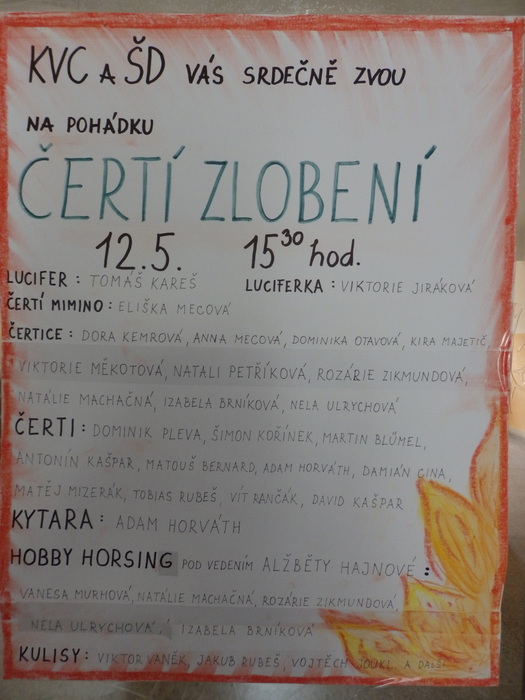 KVC A ŠD VÁS SRDEČNĚ ZVOU
NA POHÁDKU
ČERTÍ ZLOBENÍ
12.5. 15³⁰ hod.
LUCIFER: TOMÁŠ KAREŠ LUCIFERKA: VIKTORIE JIRÁKOVÁ
ČERTÍ MIMINO: ELIŠKA MECOVÁ
ČERTICE: DORA KEMROVÁ, ANNA MECOVÁ, DOMINIKA OTAVOVÁ, KIRA MAJETIČ,
VIKTORIE MĚKOTOVÁ, NATALI PETŘÍKOVÁ, ROZÁRIE ZIKMUNDOVÁ,
NATÁLIE MACHAČNÁ, IZABELA BRNÍKOVÁ, NELA ULRYCHOVÁ
ČERTI: DOMINIK PLEVA, ŠIMON KOŘÍNEK, MARTIN BLÜMEL,
ANTONÍN KAŠPAR, MATOUŠ BERNARD, ADAM HORVÁTH, DAMIÁN CINA,
MATĚJ MIZERÁK, TOBIAS RUBEŠ, VÍT RANČÁK, DAVID KAŠPAR
KYTARA: ADAM HORVÁTH
HOBBY HORSING POD VEDENÍM ALŽBĚTY HAJNOVÉ:
VANESA MURHOVÁ, NATÁLIE MACHAČNÁ, ROZÁRIE ZIKMUNDOVÁ,
NELA ULRYCHOVÁ, IZABELA BRNÍKOVÁ
KULISY: VIKTOR VANĚK, JAKUB RUBEŠ, VOJTĚCH JOUKL A DALŠÍ